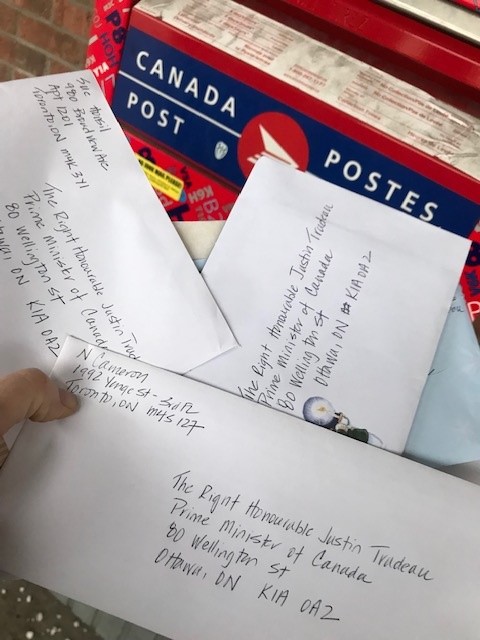 CANADA
POST
POSTES
Apt 1201
Toronto, ON M4K 3Y1
The Right Honourable Justin
Prime Minister of Canada
80 Wellington St
ON K1A 0A2
The Right Honourable Justin Trudeau
Prime Minister of Canada
80 Wellington St
Ottawa, ON K1A 0A2
N Cameron
1992 Yonge St - 3rd FL
Toronto, ON M4S 1Z7
The Right Honourable Justin Trudeau
Prime Minister of Canada
80 Wellington St
Ottawa, ON K1A 0A2